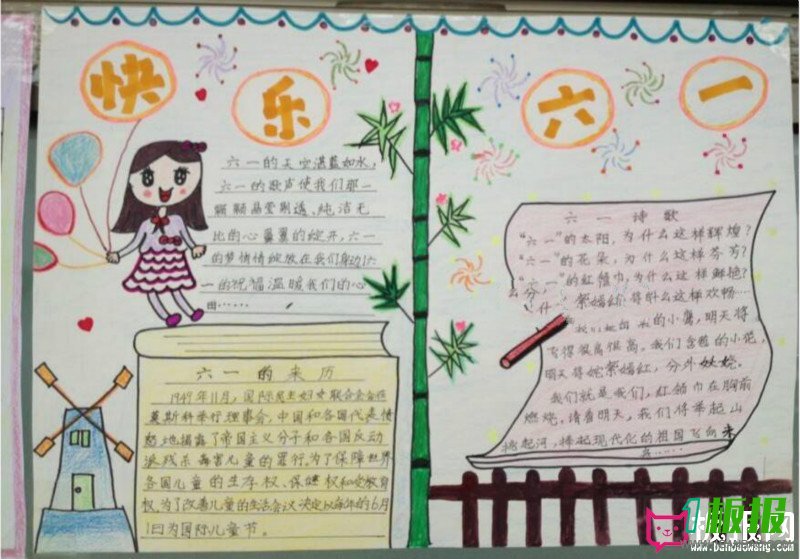 快乐
六一
六一的天空湛蓝如水,
六一的歌声使我们那一
颗颗晶莹剔透,纯洁无
比的心重重的绽开,六一
的梦悄悄绽放在我们身边六
一的祝福温暖我们的心
田……
六一的来历
1949年11月,国际民主妇女联合会在
莫斯科举行理事会,中国和各国代表愤
怒地揭露了帝国主义分子和各国反动
派残杀毒害儿童的罪行,为了保障世界
各国儿童的生存权、保健权和受教育
权,为了改善儿童的生活会议决定以每年的6月
1日为国际儿童节。
六一诗歌
“六一”的太阳,为什么这样辉煌?
“六一”的花朵,为什么这样芬芳?
“六一”的红领巾,为什么这样鲜艳?
什么
的小鹰,明天将
飞得很高很高。我们含苞的小花,
明天将姹紫嫣红,分外妖娆。
我们就是我们,红领巾在胸前
燃烧,请看明天,我们将举起山
挑起河,捧起现代化的祖国飞向未
来……
1板报
www.banbaowang.com